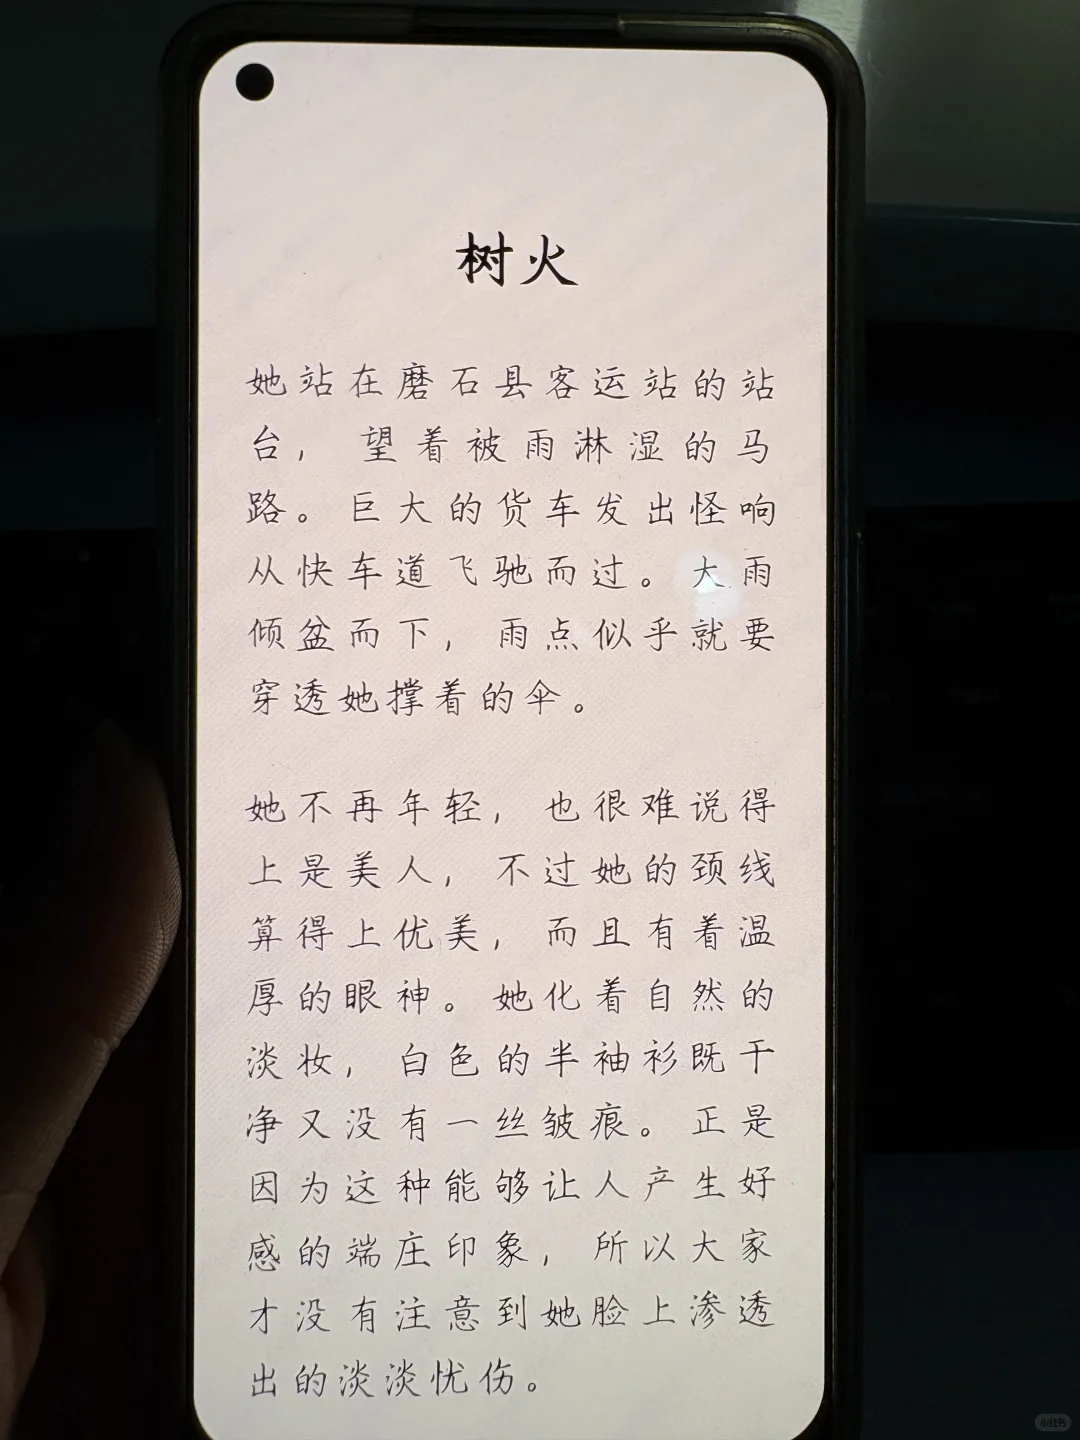 树火
她站在磨石县客运站的站
台，望着被雨淋湿的马
路。巨大的货车发出怪响
从快车道飞驰而过。大雨
倾盆而下，雨点似乎就要
穿透她撑着的伞。
她不再年轻，也很难说得
上是美人，不过她的颈线
算得上优美，而且有着温
厚的眼神。她化着自然的
淡妆，白色的半袖衫既干
净又没有一丝皱痕。正是
因为这种能够让人产生好
感的端庄印象，所以大家
才没有注意到她脸上渗透
出的淡淡忧伤。